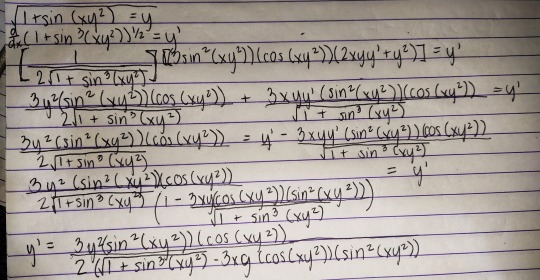 √1+sin (xy²) = y
d/dx (1+sin³(xy²))^1/2 = y'
[1 / 2√1+sin³(xy²)] [(3sin²(xy²))(cos(xy²))(2xyy'+y²)] = y'
3y²(sin²(xy²))(cos(xy²)) / 2√1+sin³(xy²) + 3xyy'(sin²(xy²))(cos(xy²)) / √1+sin³(xy²) = y'
3y²(sin²(xy²))(cos(xy²)) / 2√1+sin³(xy²) = y' - 3xyy'(sin²(xy²))(cos(xy²)) / √1+sin³(xy²)
3y²(sin²(xy²))(cos(xy²)) / 2√1+sin³(xy²) (1 - 3xy(cos(xy²))(sin²(xy²)) / √1+sin³(xy²)) = y'
y' = 3y²(sin²(xy²))(cos(xy²)) / 2(√1+sin³(xy²) - 3xy(cos(xy²))(sin²(xy²))